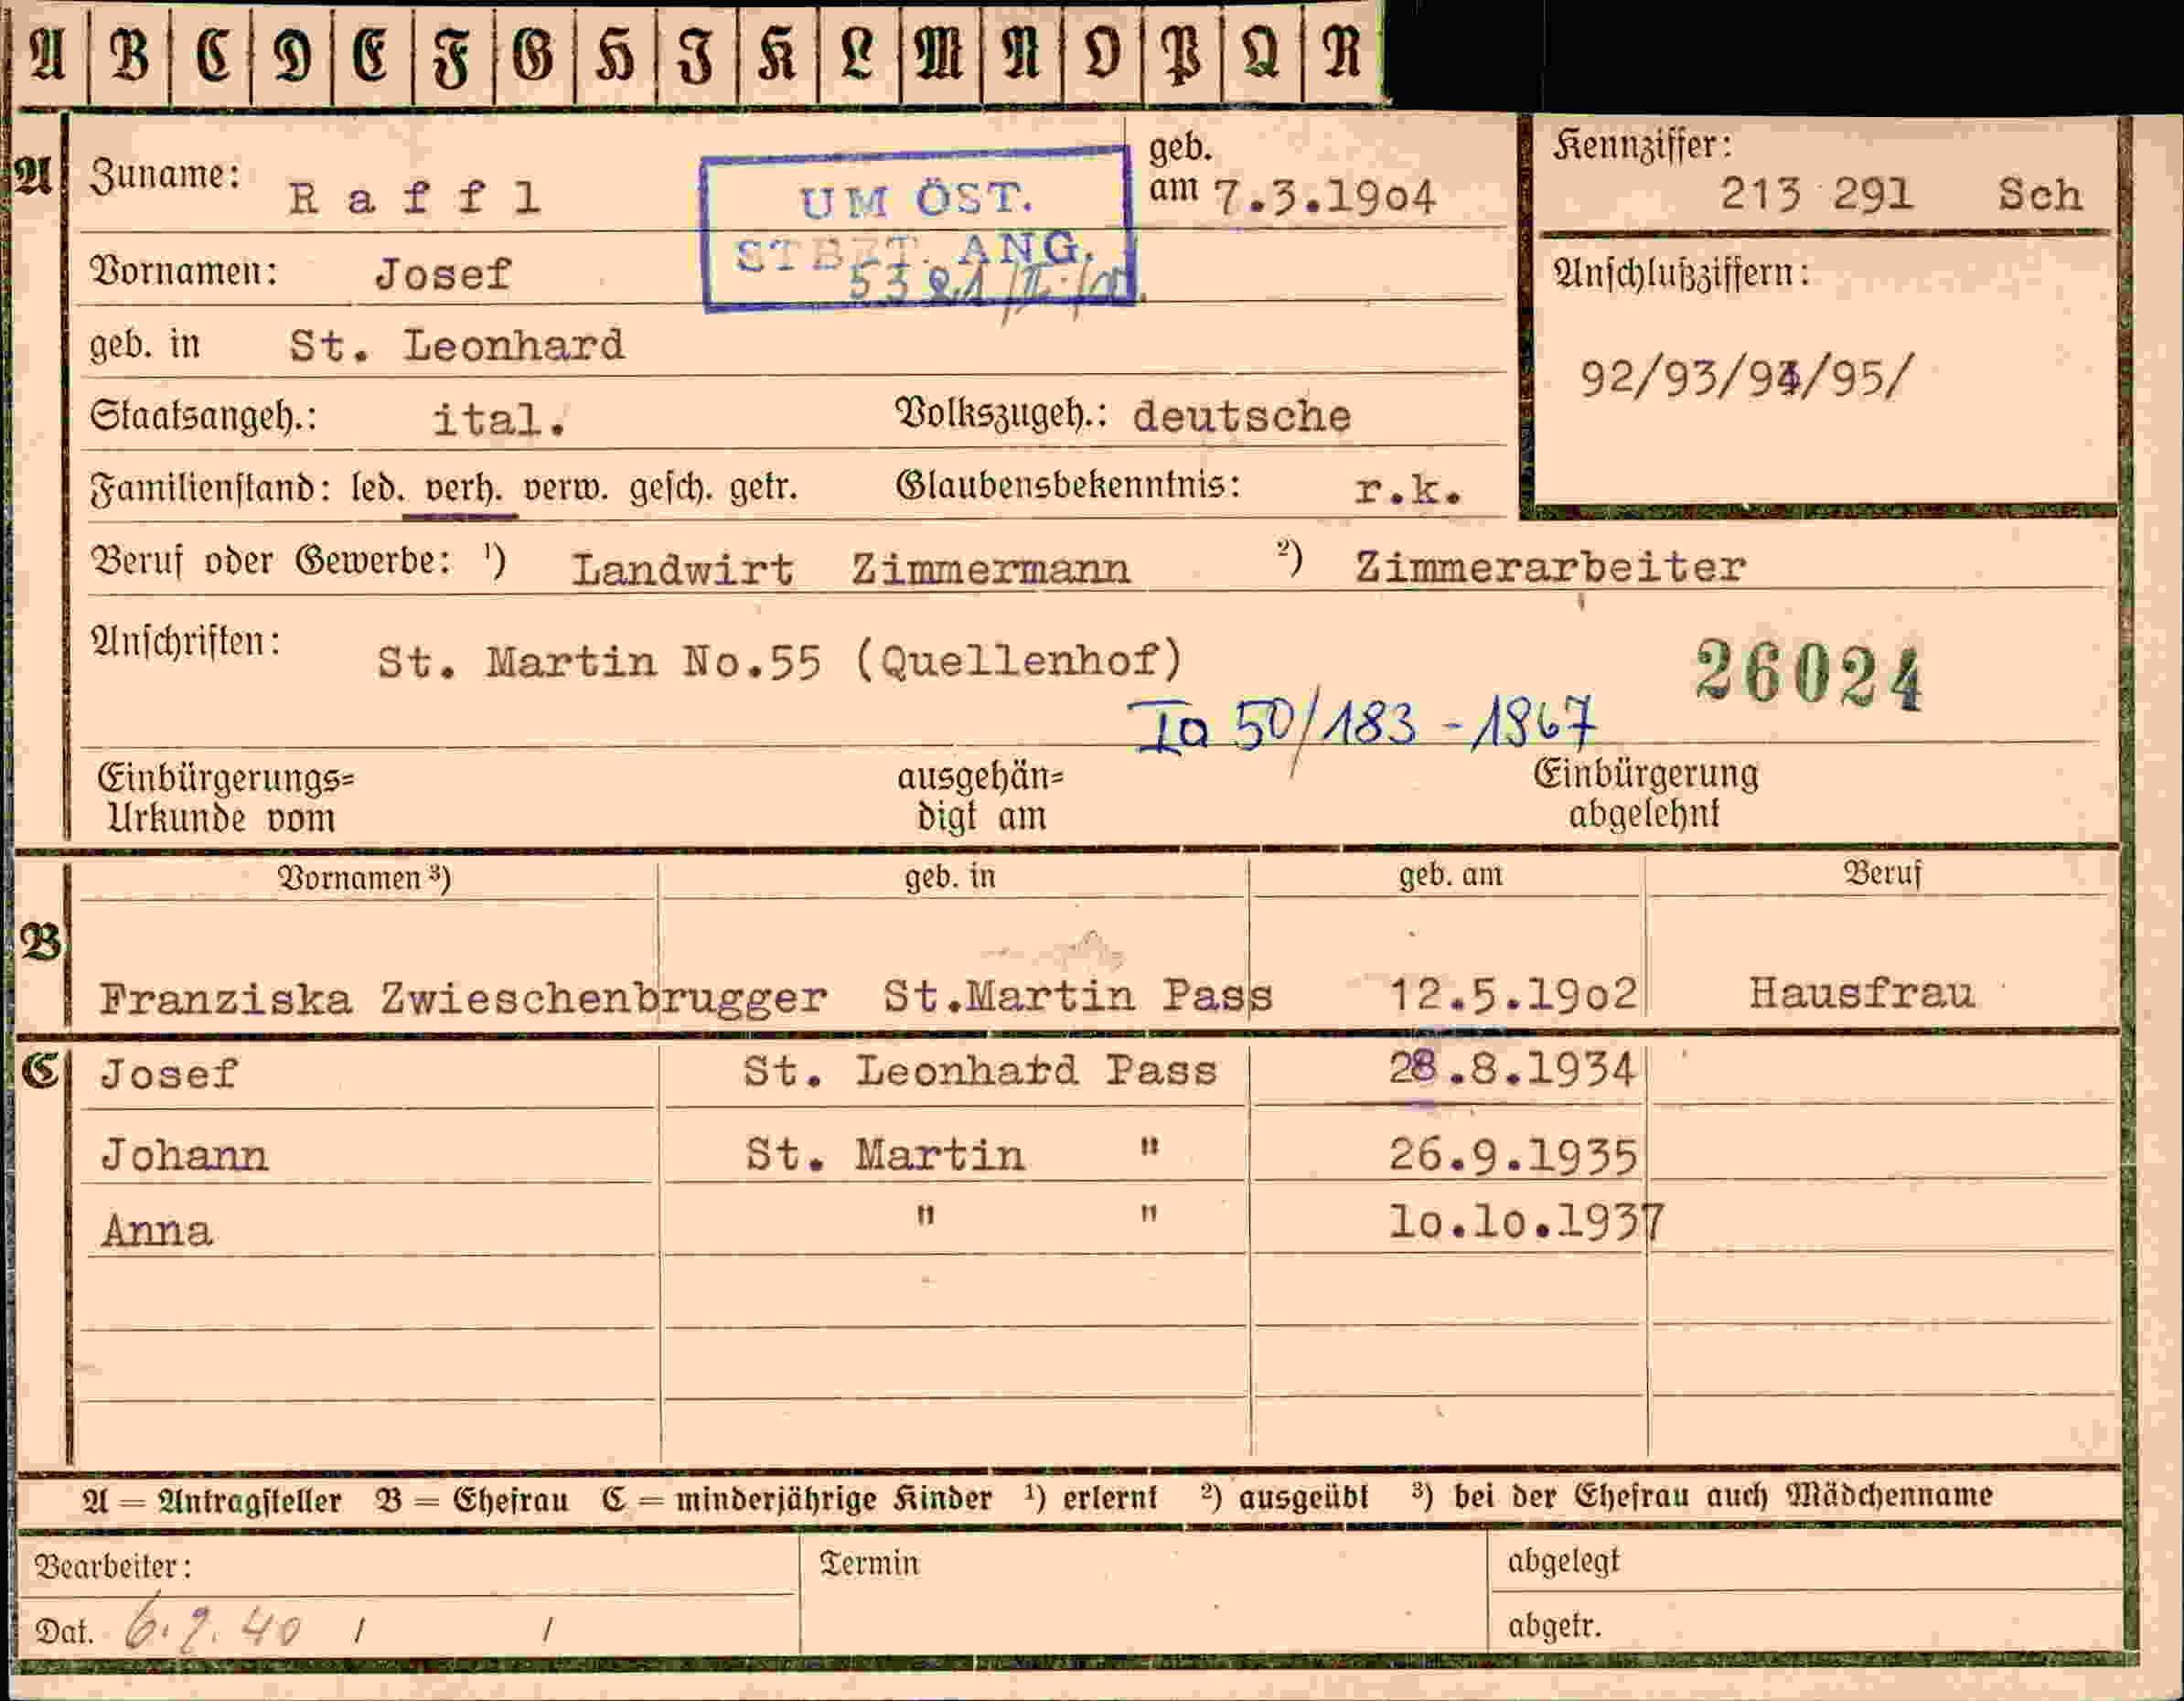 A B C D E F G H I K L M N O P Q R
A Zuname: Raffl
UM ÖST.
STBZT. ANG.
geb.
am 7.3.1904
Kennziffer:
213 291 Sch
Vornamen: Josef
Anschlußziffern:
92/93/94/95/
geb. in St. Leonhard
Staatsangeh.: ital. Volkszugeh.: deutsche
Familienstand: led. verh. verw. gesch. getr. Glaubensbekenntnis: r.k.
Beruf oder Gewerbe: ¹) Landwirt Zimmermann ²) Zimmerarbeiter
Anschriften: St. Martin No.55 (Quellenhof)
26024
Ia 50/183 - 1967
Einbürgerungs=
Urkunde vom
ausgehän=
digt am
Einbürgerung
abgelehnt
Vornamen ³) geb. in geb. am Beruf
B Franziska Zwieschenbrugger St.Martin Pass 12.5.1902 Hausfrau
C Josef St. Leonhard Pass 28.8.1934
Johann St. Martin " 26.9.1935
Anna " " 10.10.1937
A = Antragsteller B = Ehefrau C = minderjährige Kinder ¹) erlernt ²) ausgeübt ³) bei der Ehefrau auch Mädchenname
Bearbeiter: Termin abgelegt
Dat. 6.2.40 / / abgetr.